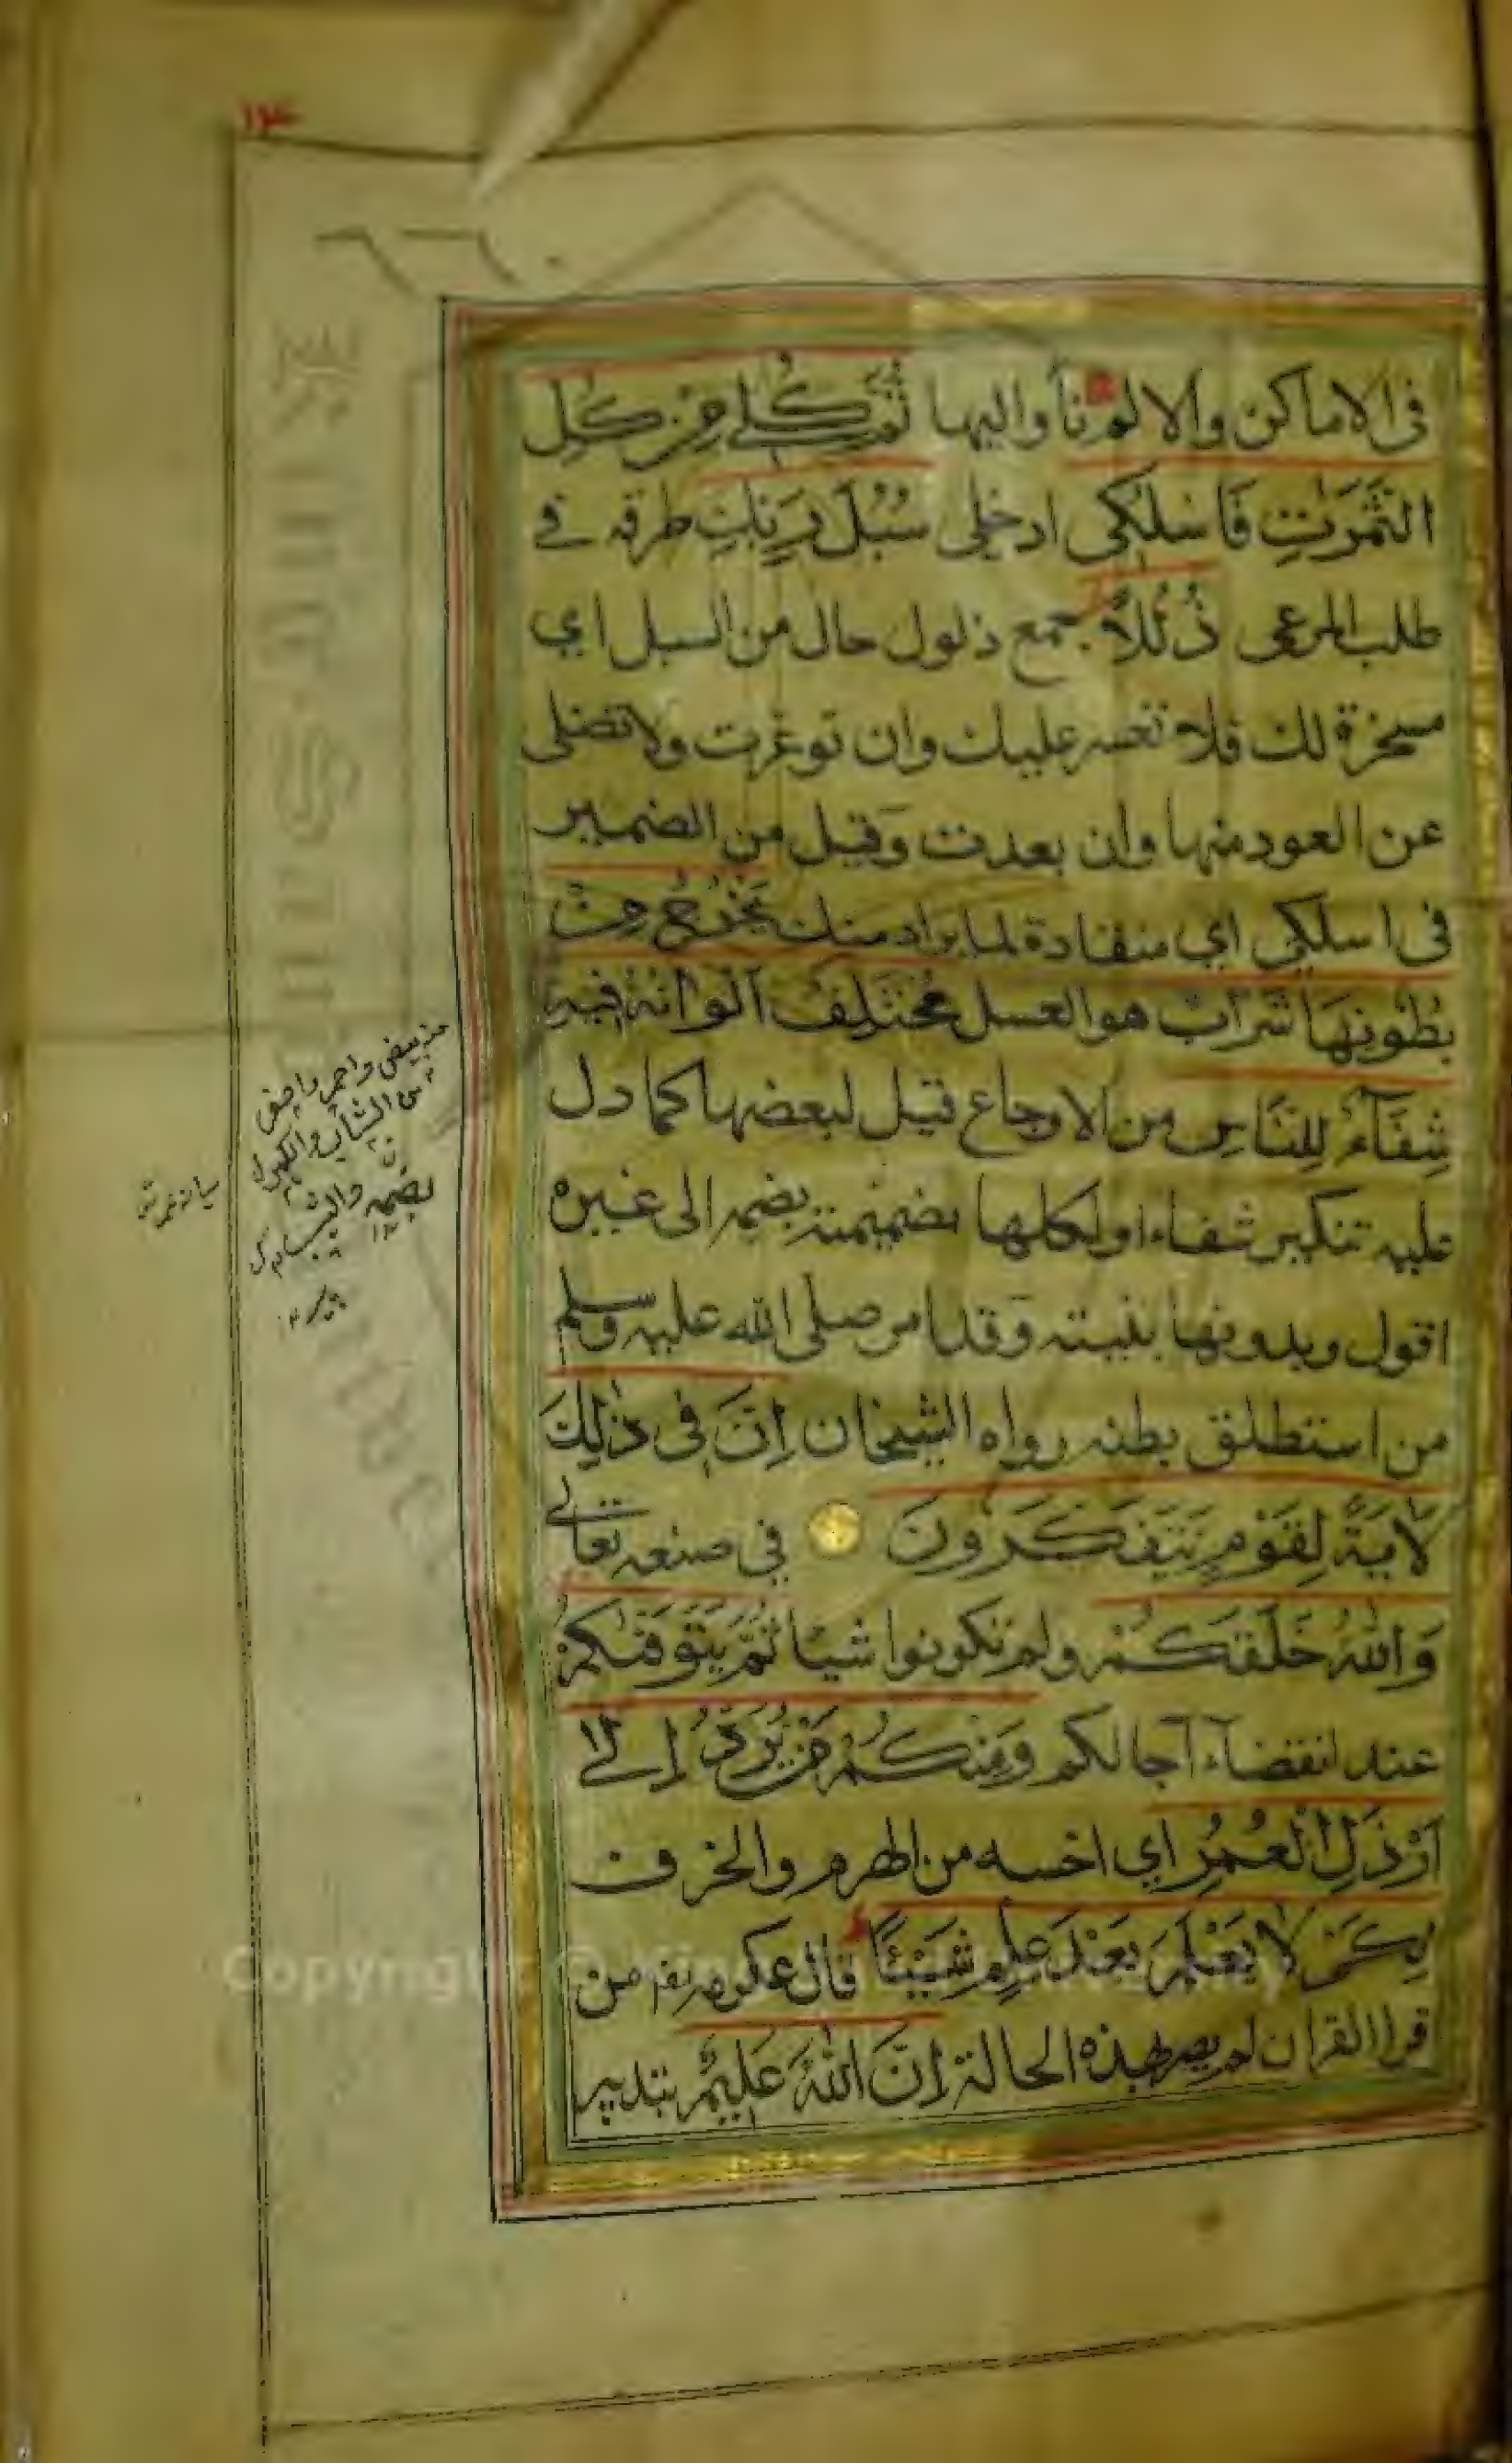 ١٢٤
فى الاماكن والا لم تأواليها ثُمَّ كُلِى مِنْ كُلِّ
الثَّمَرٰتِ فَاسْلُكِى ادخلى سُبُلَ رَبِّكِ طرقه فى
طلب المرعى ذُلُلاً جمع ذلول حال من السبل اي
مسخرة لك فلا تعسر عليك وان توعرت ولا تضلى
عن العود منها وان بعدت وقيل من الضمير
فى اسلكى اي منقادة لما يراد منك يَخْرُجُ مِنْ
بُطُونِهَا شَرَابٌ هو العسل مُخْتَلِفٌ اَلْوَانُهُ فِيهِ
شِفَآءٌ لِلنَّاسِ من الاوجاع قيل لبعضها كما دل
عليه تنكير شفاء اولكلها بضميمته بضمه الى غيره
اقول وبدونها بنيته وقد امر صلى الله عليه وسلم
من استطلق بطنه رواه الشيخان اِنَّ فِى ذٰلِكَ
لَاٰيَةً لِقَوْمٍ يَتَفَكَّرُونَ فى صنعه تعالى
وَاللّٰهُ خَلَقَكُمْ ولم تكونوا شيئا ثُمَّ يَتَوَفّٰىكُمْ
عند انقضآء آجالكم وَمِنْكُمْ مَنْ يُرَدُّ اِلٰى
اَرْذَلِ الْعُمُرِ اي اخسه من الهرم والخرف
لِكَىْ لَا يَعْلَمَ بَعْدَ عِلْمٍ شَيْئًا قال عكرمة من
قرا القران لم يصر بهذه الحالة اِنَّ اللّٰهَ عَلِيمٌ بتدبير
من بيض واحمر واصفر
من الشاب والكهول
Copyright © King Saud University